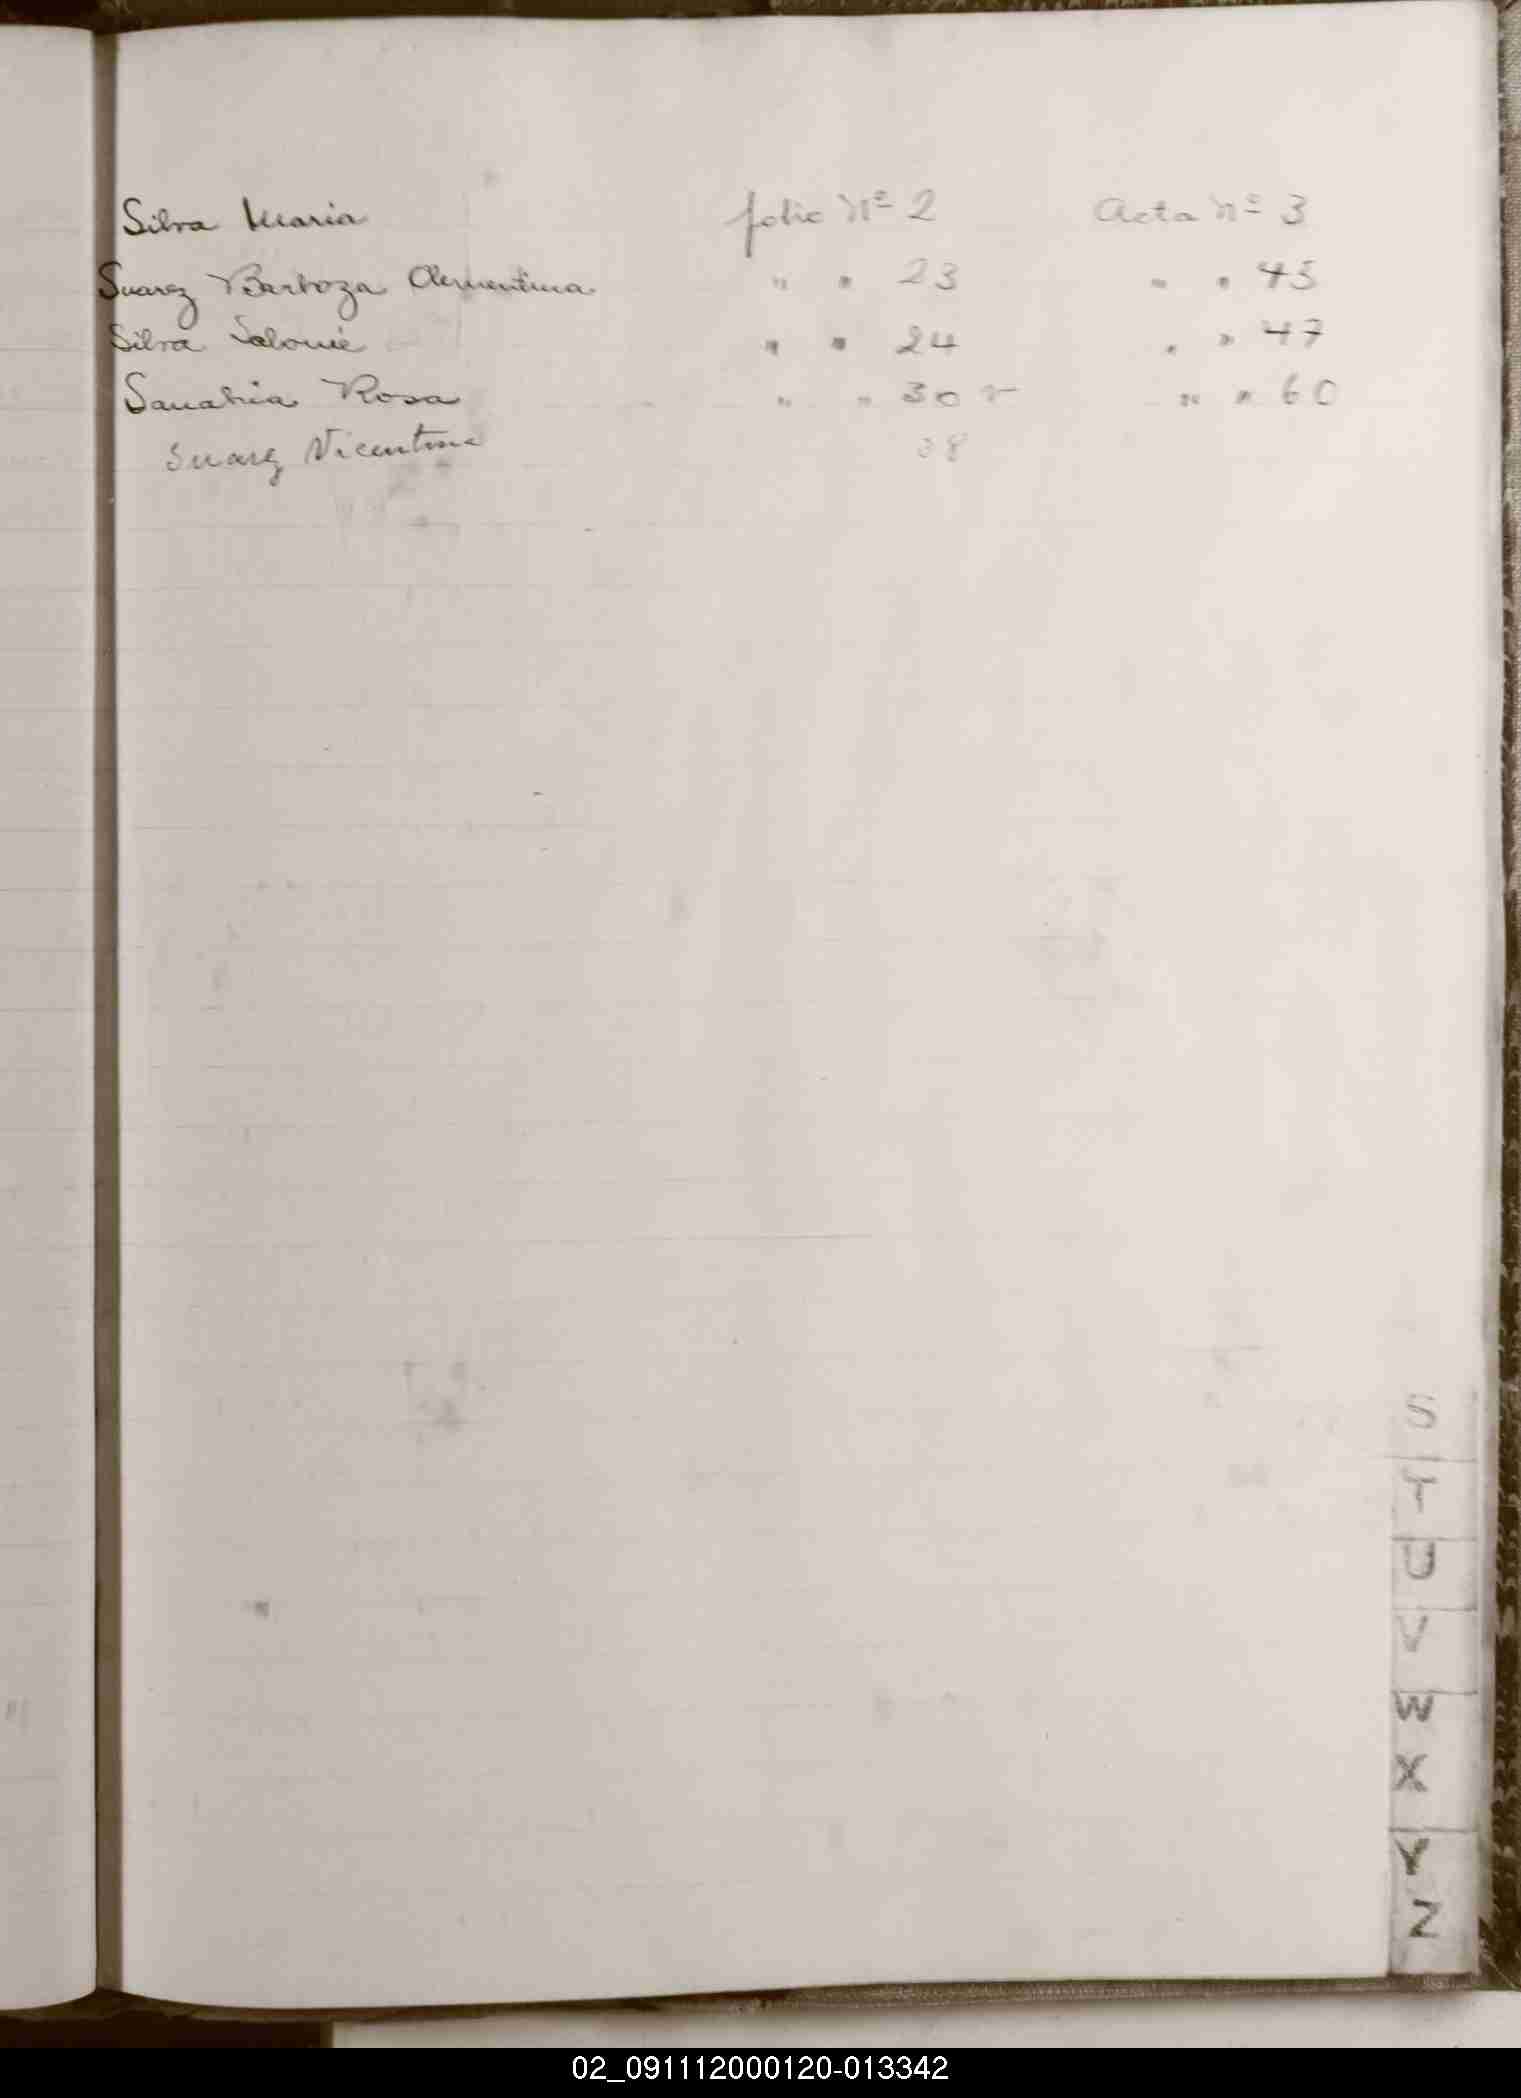 Silva Maria folio Nº 2 Acta Nº 3
Suarez Barboza Clementina " " 23 " " 45
Silva Salomé " " 24 " " 47
Sanabria Rosa " " 30 v " " 60
Suarez Vicentina 38
S
T
U
V
W
X
Y
Z
02_091112000120-013342